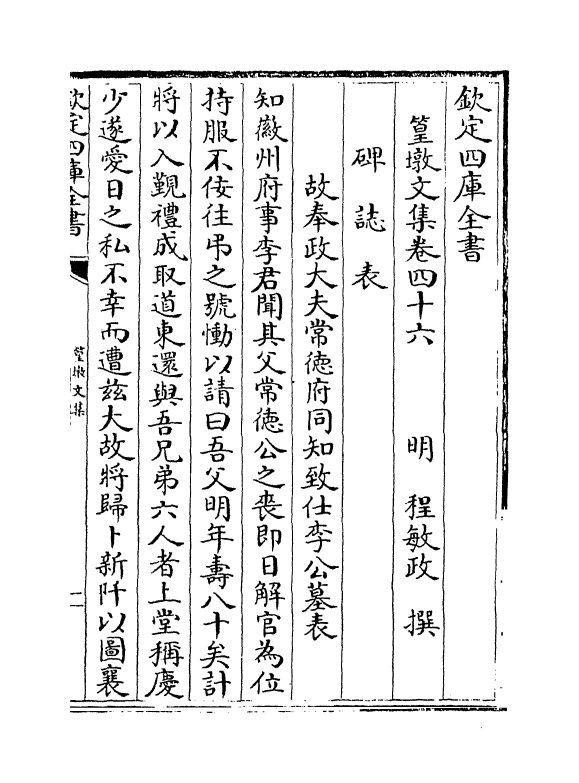 欽定四庫全書
篁墩文集卷四十六　明　程敏政　撰
碑誌表
故奉政大夫常德府同知致仕李公墓表
知徽州府事李君聞其父常德公之喪即日解官為位
持服不佞往弔之號慟以請曰吾父明年壽八十矣計
將以入覲禮成取道東還與吾兄弟六人者上堂稱慶
少遂愛日之私不幸而遭茲大故將歸卜新阡以圖襄
欽定四庫全書
篁墩文集
一